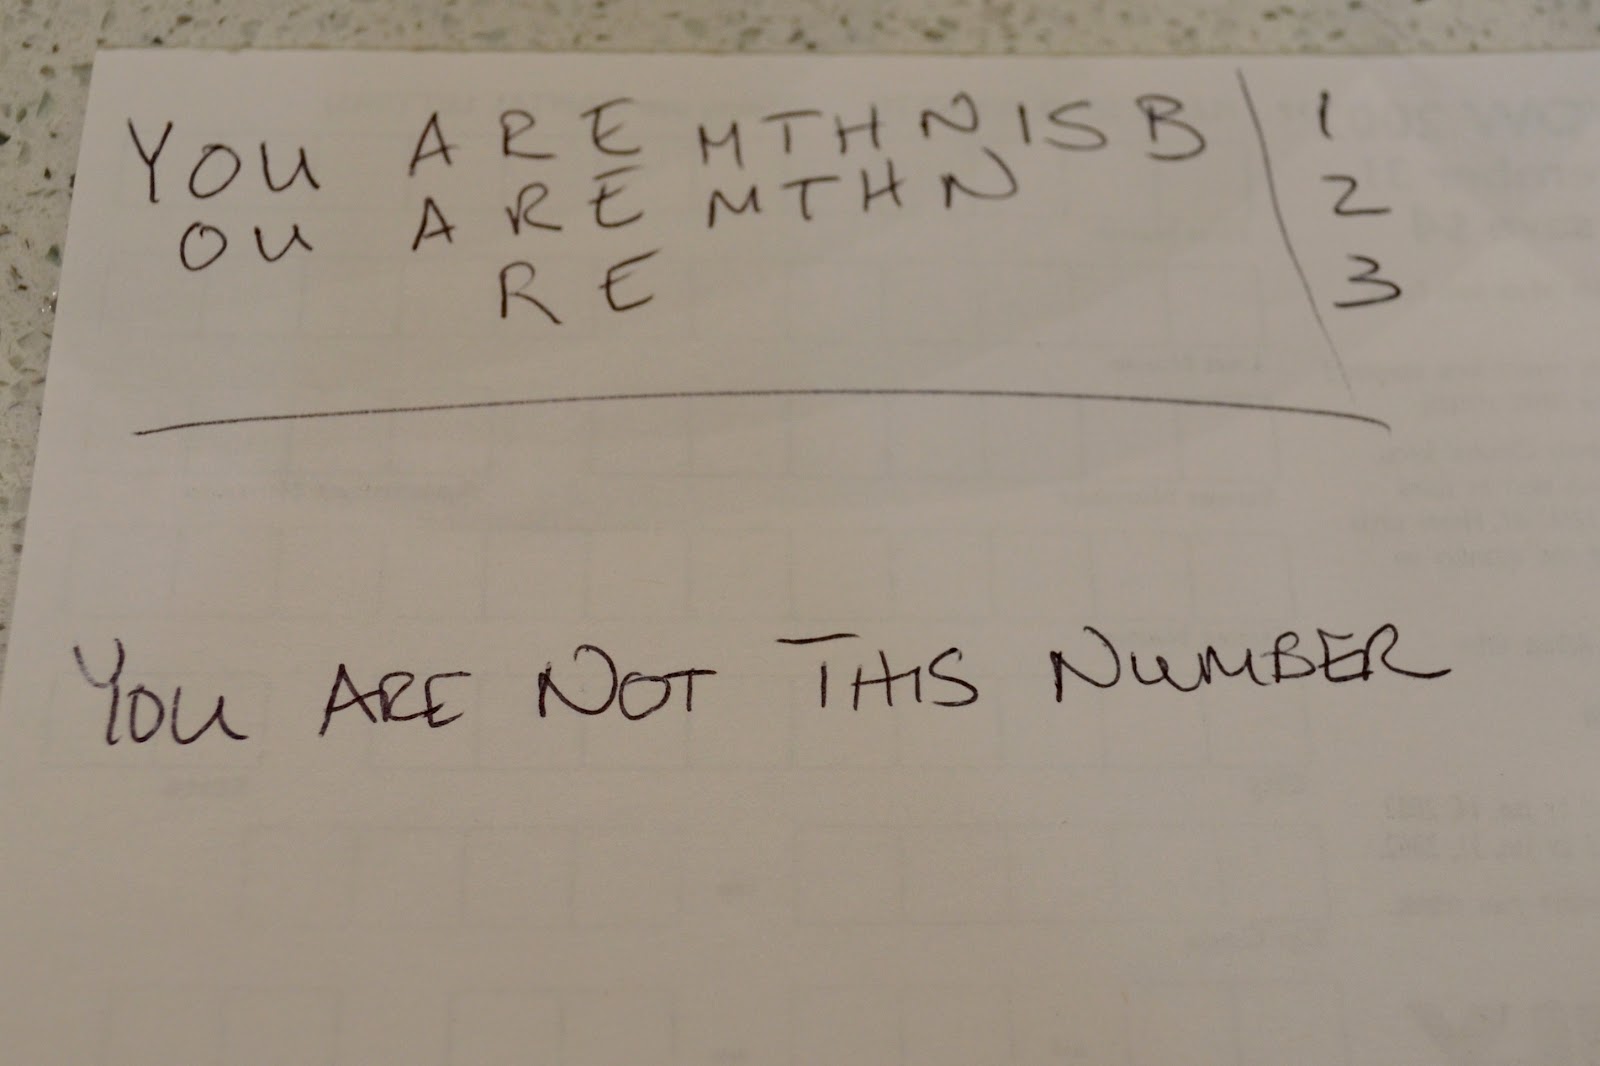 YOU ARE MTHNISB 1
OU ARE MTHN 2
RE 3
YOU ARE NOT THIS NUMBER